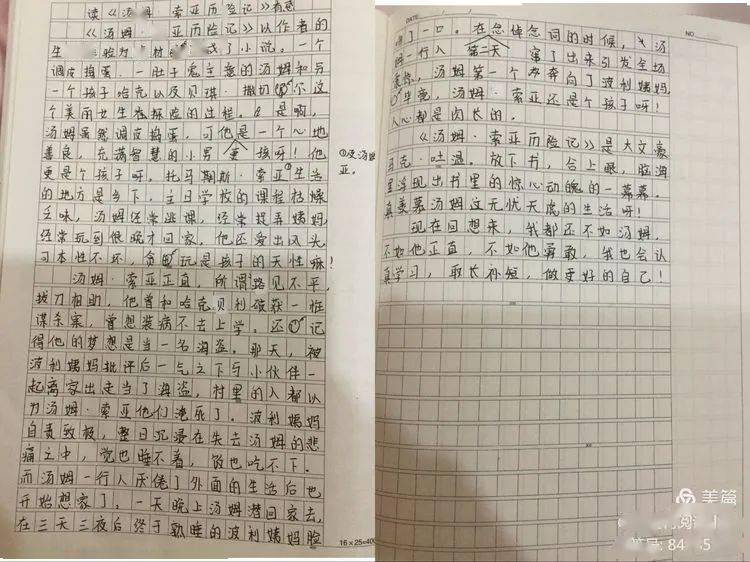 读《汤姆·索亚历险记》有感
《汤姆·亚历险记》以作者的
生 验为 村 成了小说。一个
调皮捣蛋、一肚子鬼主意的汤姆和另
一个孩子哈克以及贝琪·撒切尔这
个美丽女生在探险的过程。是啊,
汤姆虽然调皮捣蛋,可他是一个心地
善良,充满智慧的小男孩呀!他
更是个孩子呀。托马斯·索亚①生活
①及汤姆
亚。
的地方是乡下,主日学校的课程枯燥
乏味,汤姆经常逃课,经常捉弄姨妈,
经常玩到很晚才回家,他还爱出风头,
可本性不坏,贪玩是孩子的天性嘛!
汤姆·索亚正直,所谓路见不平,
拔刀相助,他曾和哈克贝利破获一桩
谋杀案,曾想装病不去上学。还记
得他的梦想是当一名海盗。那天,被
波利姨妈批评后一气之下与小伙伴一
起离家出走当了海盗,村里的人都以
为汤姆·索亚他们淹死了。波利姨妈
自责致极,整日沉浸在失去汤姆的悲
痛之中,觉也睡不着,饭也吃不下。
而汤姆一行人厌倦了外面的生活后也
开始想家了。一天晚上汤姆潜回家去,
在三天三夜后终于熟睡的波利姨妈脸
16×25=400
DATE
NO
了一口。在念悼念词的时候,汤
姆一行人 第二天 窜了出来引发全场
震惊,汤姆第一个奔向了波利姨妈,
毕竟,汤姆·索亚还是个孩子呀!
人心都是肉长的。
《汤姆·索亚历险记》是大文豪
马克·吐温。放下书,合上眼,脑海
里浮现出书里的惊心动魄的一幕幕。
真羡慕汤姆这无忧无虑的生活呀!
现在回想来,我都还不如汤姆,
不如他正直,不如他勇敢,我也会认
真学习,取长补短,做更好的自己!
美篇